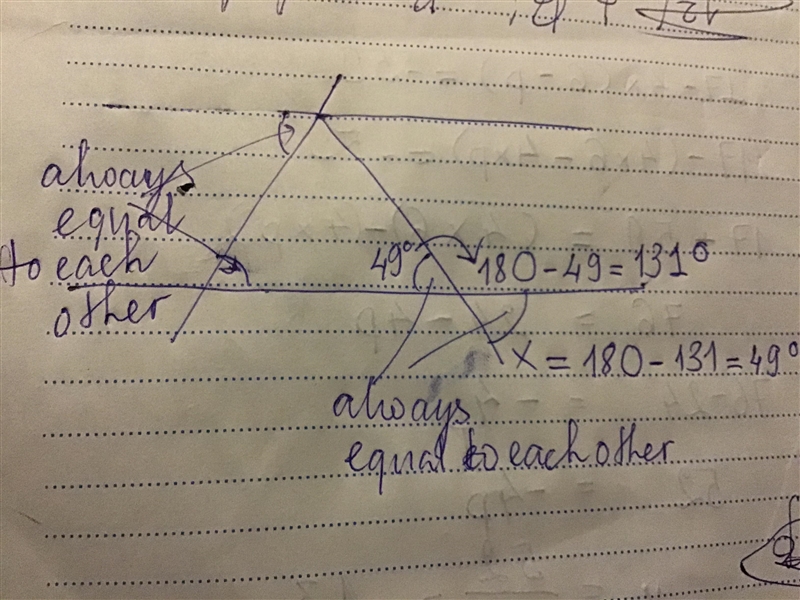 always
equal
to each
other
49° 180-49=131°
x = 180-131=49°
always
equal to each other